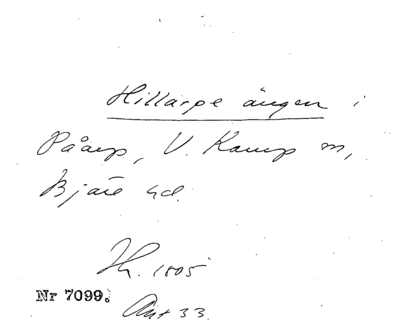 Hillarpe ängen i
Påarp, V. Karup sn,
Bjäre hd.
Th. 1805
Nr 7099.
Akt 33.